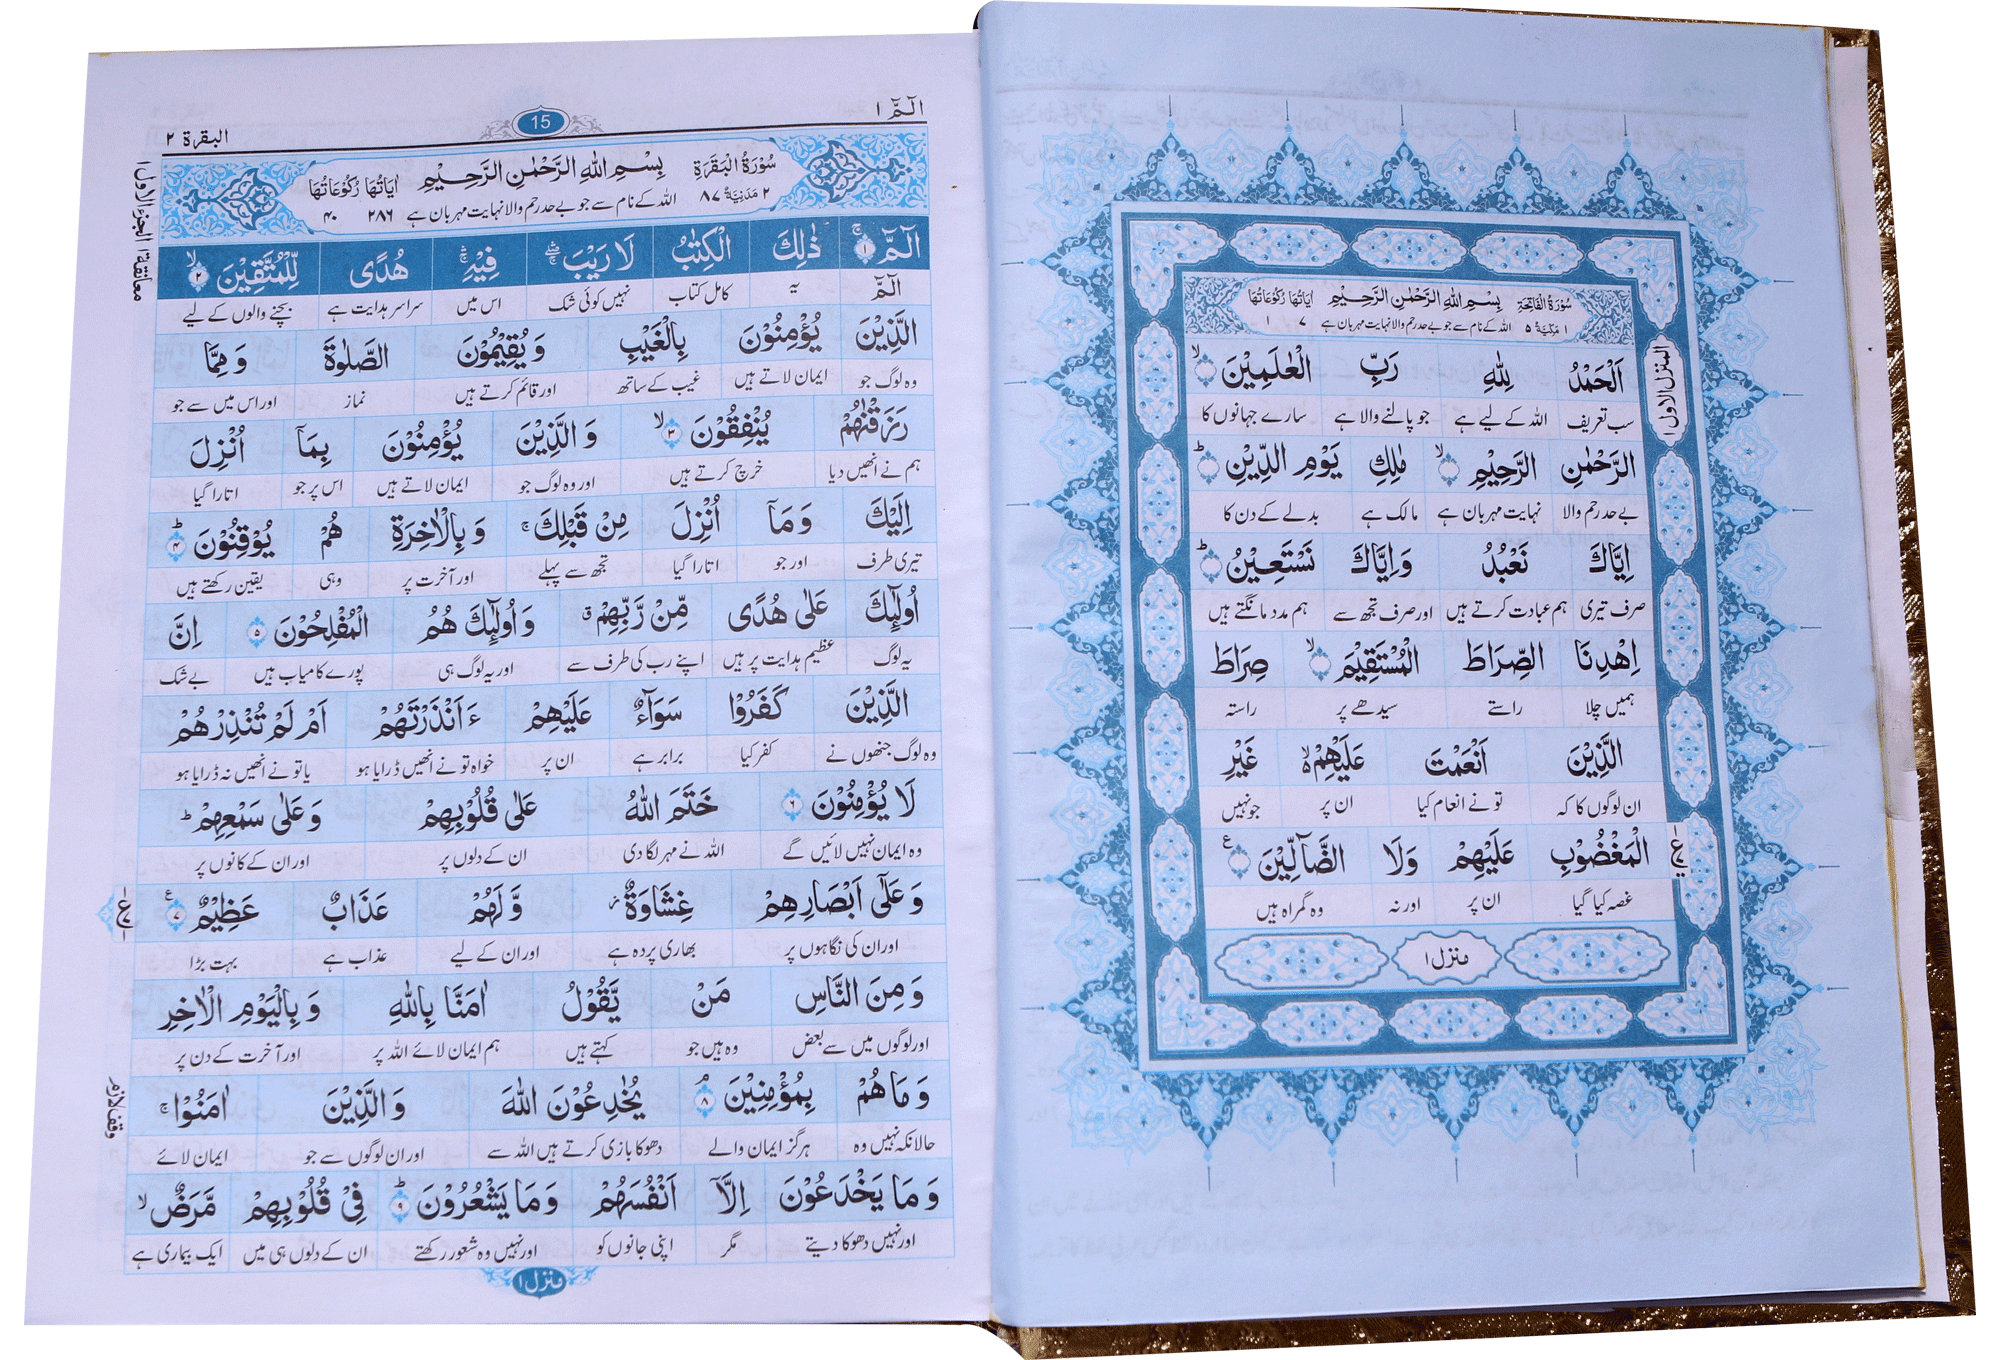 سُوْرَةُ الْفَاتِحَةِ بِسْمِ اللّٰهِ الرَّحْمٰنِ الرَّحِيْمِ اٰيَاتُهَا رُكُوْعَاتُهَا
۱ مَكِّيَّةٌ ۵ اللہ کے نام سے جو بے حد رحم والا نہایت مہربان ہے ۷ ۱
المنزل الاول ۱
اَلْحَمْدُ لِلّٰهِ رَبِّ الْعٰلَمِيْنَ ۙ
سب تعریف اللہ کے لیے ہے جو پالنے والا ہے سارے جہانوں کا
الرَّحْمٰنِ الرَّحِيْمِ ۙ مٰلِكِ يَوْمِ الدِّيْنِ ؕ
بے حد رحم والا نہایت مہربان ہے مالک ہے بدلے کے دن کا
اِيَّاكَ نَعْبُدُ وَاِيَّاكَ نَسْتَعِيْنُ ؕ
صرف تیری ہم عبادت کرتے ہیں اور صرف تجھ سے ہم مدد مانگتے ہیں
اِهْدِنَا الصِّرَاطَ الْمُسْتَقِيْمَ ۙ صِرَاطَ
ہمیں چلا راستے سیدھے پر راستہ
الَّذِيْنَ اَنْعَمْتَ عَلَيْهِمْ ۙ۬ غَيْرِ
ان لوگوں کا کہ تو نے انعام کیا ان پر جو نہیں
الْمَغْضُوْبِ عَلَيْهِمْ وَلَا الضَّآلِّيْنَ
غصہ کیا گیا ان پر اور نہ وہ گمراہ ہیں
منزل ۱
الٓمّٓ ۱ 15 البقرة ۲
سُوْرَةُ الْبَقَرَةِ بِسْمِ اللّٰهِ الرَّحْمٰنِ الرَّحِيْمِ اٰيَاتُهَا رُكُوْعَاتُهَا
۲ مَدَنِيَّةٌ ۸۷ اللہ کے نام سے جو بے حد رحم والا نہایت مہربان ہے ۲۸۶ ۴۰
معانقة ۱ الجزء الاول ۱
الٓمّٓ ۚ ۱ ذٰلِكَ الْكِتٰبُ لَا رَيْبَ ۛۖۚ فِيْهِ ۛۚ هُدًى لِّلْمُتَّقِيْنَ ۙ ۲
الٓمّٓ یہ کامل کتاب نہیں کوئی شک اس میں سراسر ہدایت ہے بچنے والوں کے لیے
الَّذِيْنَ يُؤْمِنُوْنَ بِالْغَيْبِ وَيُقِيْمُوْنَ الصَّلٰوةَ وَمِمَّا
وہ لوگ جو ایمان لاتے ہیں غیب کے ساتھ اور قائم کرتے ہیں نماز اور اس میں سے جو
رَزَقْنٰهُمْ يُنْفِقُوْنَ ۙ ۳ وَالَّذِيْنَ يُؤْمِنُوْنَ بِمَآ اُنْزِلَ
ہم نے انھیں دیا خرچ کرتے ہیں اور وہ لوگ جو ایمان لاتے ہیں اس پر جو اتارا گیا
اِلَيْكَ وَمَآ اُنْزِلَ مِنْ قَبْلِكَ ۚ وَبِالْاٰخِرَةِ هُمْ يُوْقِنُوْنَ ؕ ۴
تیری طرف اور جو اتارا گیا تجھ سے پہلے اور آخرت پر وہی یقین رکھتے ہیں
اُولٰٓئِكَ عَلٰى هُدًى مِّنْ رَّبِّهِمْ ۗ وَاُولٰٓئِكَ هُمُ الْمُفْلِحُوْنَ ۵ اِنَّ
یہ لوگ عظیم ہدایت پر ہیں اپنے رب کی طرف سے اور یہ لوگ ہی پورے کامیاب ہیں بے شک
الَّذِيْنَ كَفَرُوْا سَوَآءٌ عَلَيْهِمْ ءَاَنْذَرْتَهُمْ اَمْ لَمْ تُنْذِرْهُمْ
وہ لوگ جنھوں نے کفر کیا برابر ہے ان پر خواہ تو نے انھیں ڈرایا ہو یا تو نے انھیں نہ ڈرایا ہو
لَا يُؤْمِنُوْنَ ۶ خَتَمَ اللّٰهُ عَلٰى قُلُوْبِهِمْ وَعَلٰى سَمْعِهِمْ ؕ
وہ ایمان نہیں لائیں گے اللہ نے مہر لگا دی ان کے دلوں پر اور ان کے کانوں پر
وَعَلٰٓى اَبْصَارِهِمْ غِشَاوَةٌ ؗ وَّلَهُمْ عَذَابٌ عَظِيْمٌ ۷
اور ان کی نگاہوں پر بھاری پردہ ہے اور ان کے لیے عذاب ہے بہت بڑا
وَمِنَ النَّاسِ مَنْ يَّقُوْلُ اٰمَنَّا بِاللّٰهِ وَبِالْيَوْمِ الْاٰخِرِ
اور لوگوں میں سے بعض وہ ہیں جو کہتے ہیں ہم ایمان لائے اللہ پر اور آخرت کے دن پر
وَمَا هُمْ بِمُؤْمِنِيْنَ ۘ ۸ يُخٰدِعُوْنَ اللّٰهَ وَالَّذِيْنَ اٰمَنُوْا ۚ
حالانکہ نہیں وہ ہرگز ایمان والے دھوکا بازی کرتے ہیں اللہ سے اور ان لوگوں سے جو ایمان لائے
وقف لازم
وَمَا يَخْدَعُوْنَ اِلَّآ اَنْفُسَهُمْ وَمَا يَشْعُرُوْنَ ؕ ۹ فِيْ قُلُوْبِهِمْ مَّرَضٌ ۙ
اور نہیں دھوکا دیتے مگر اپنی جانوں کو اور نہیں وہ شعور رکھتے ان کے دلوں ہی میں ایک بیماری ہے
منزل ۱